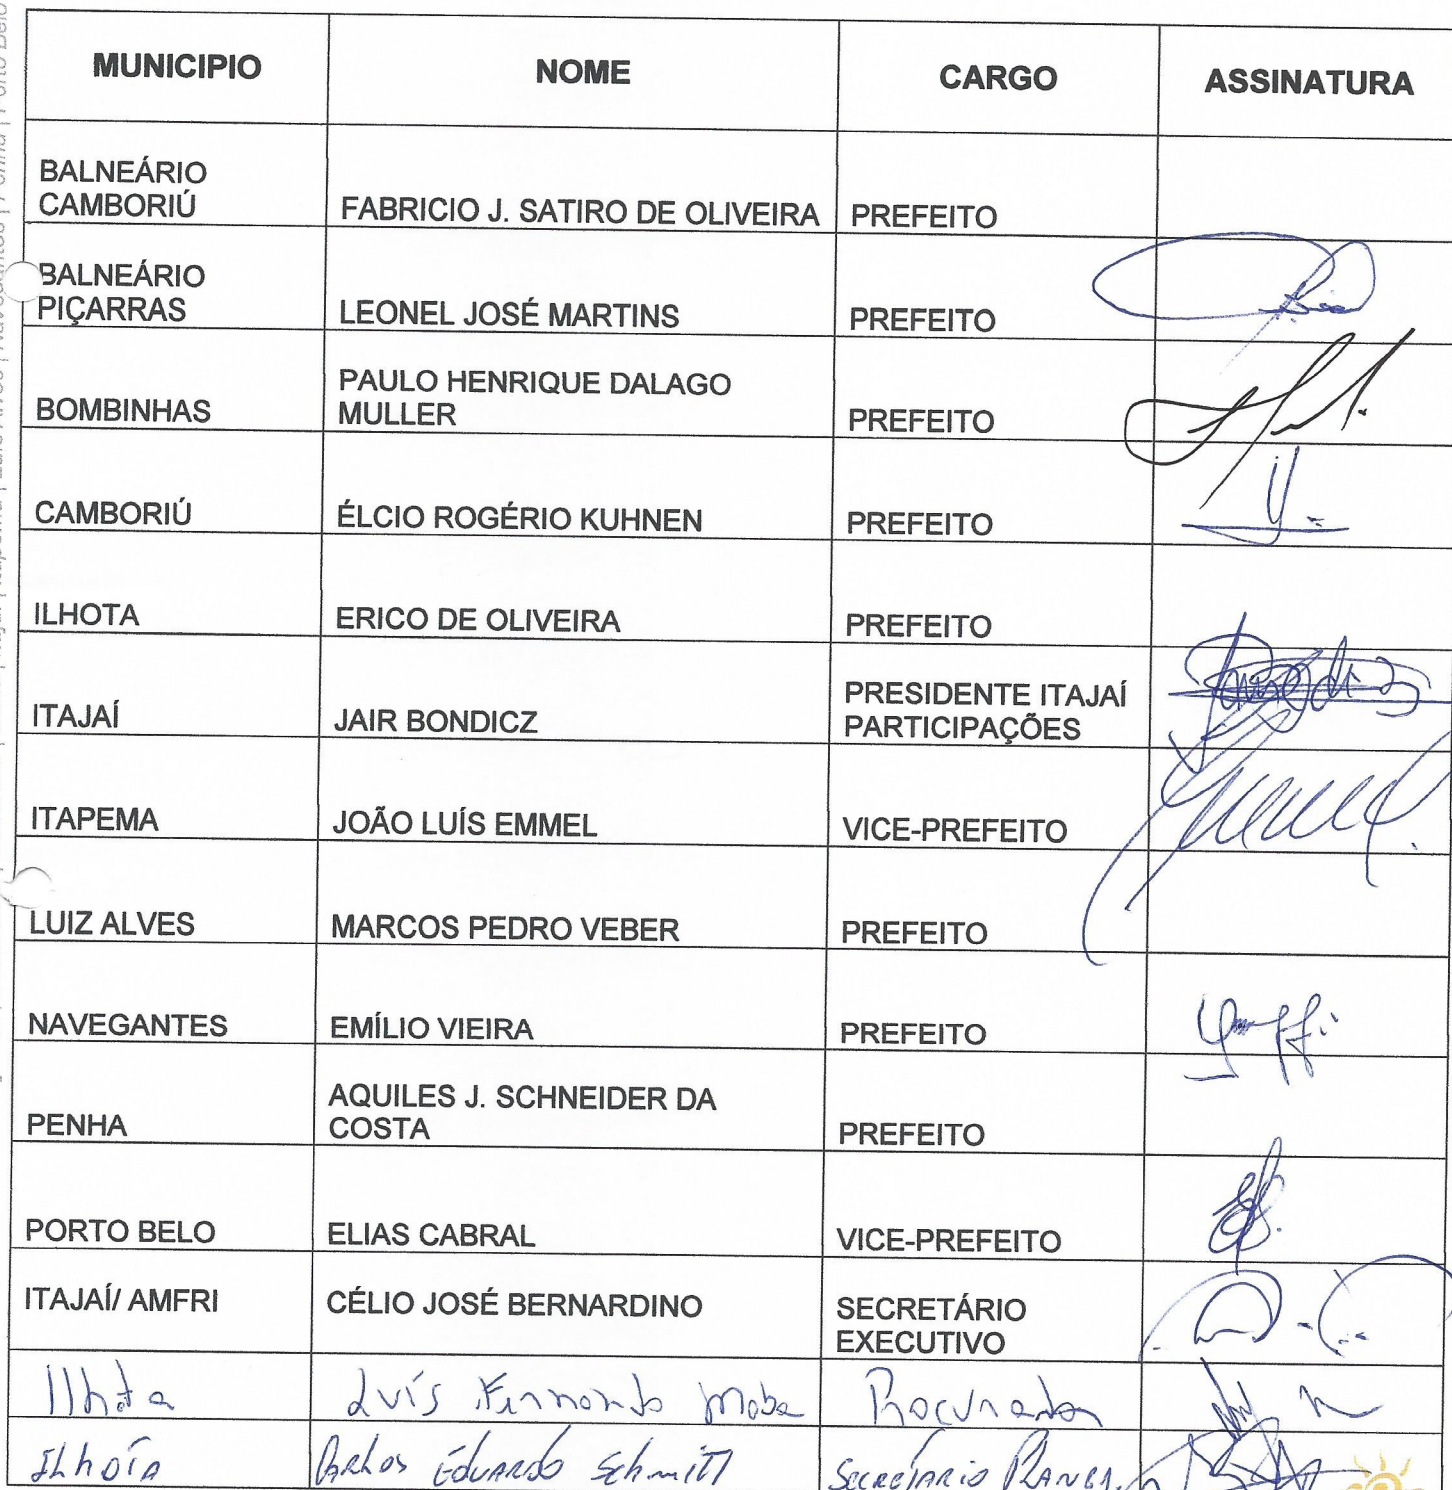 MUNICIPIO NOME CARGO ASSINATURA
BALNEÁRIO
CAMBORIÚ FABRICIO J. SATIRO DE OLIVEIRA PREFEITO
BALNEÁRIO
PIÇARRAS LEONEL JOSÉ MARTINS PREFEITO
BOMBINHAS PAULO HENRIQUE DALAGO
MULLER PREFEITO
CAMBORIÚ ÉLCIO ROGÉRIO KUHNEN PREFEITO
ILHOTA ERICO DE OLIVEIRA PREFEITO
ITAJAÍ JAIR BONDICZ PRESIDENTE ITAJAÍ
PARTICIPAÇÕES
ITAPEMA JOÃO LUÍS EMMEL VICE-PREFEITO
LUIZ ALVES MARCOS PEDRO VEBER PREFEITO
NAVEGANTES EMÍLIO VIEIRA PREFEITO
PENHA AQUILES J. SCHNEIDER DA
COSTA PREFEITO
PORTO BELO ELIAS CABRAL VICE-PREFEITO
ITAJAÍ/ AMFRI CÉLIO JOSÉ BERNARDINO SECRETÁRIO
EXECUTIVO
Ilhota Luís Fernando Procurador
Ilhota Carlos Eduardo Schmitt Secretario